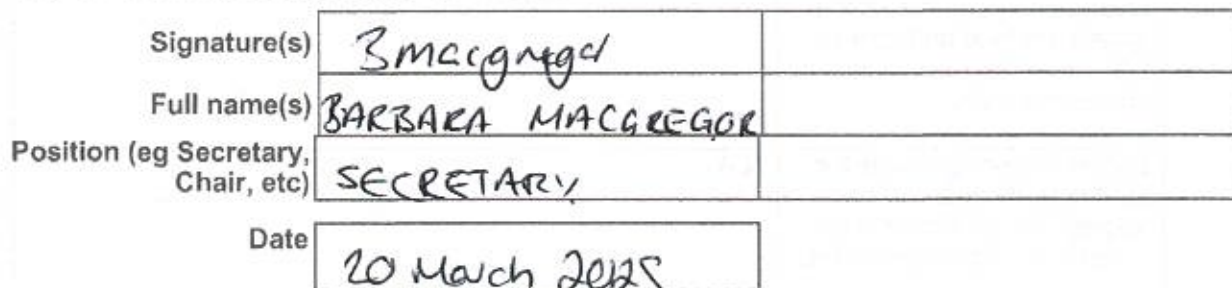 Signature(s) Bmacgregor
Full name(s) BARBARA MACGREGOR
Position (eg Secretary,
Chair, etc) SECRETARY
Date 20 March 2025